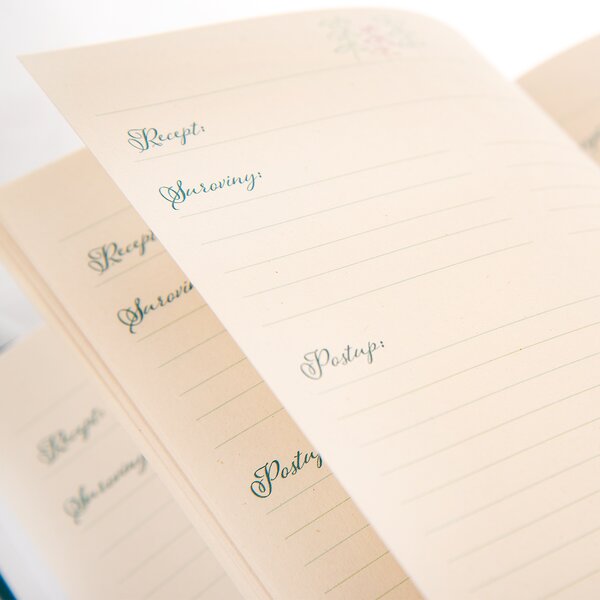 Recept:
Suroviny:
Postup:
Recept
Surovi
Postup
Recept:
Suroviny: